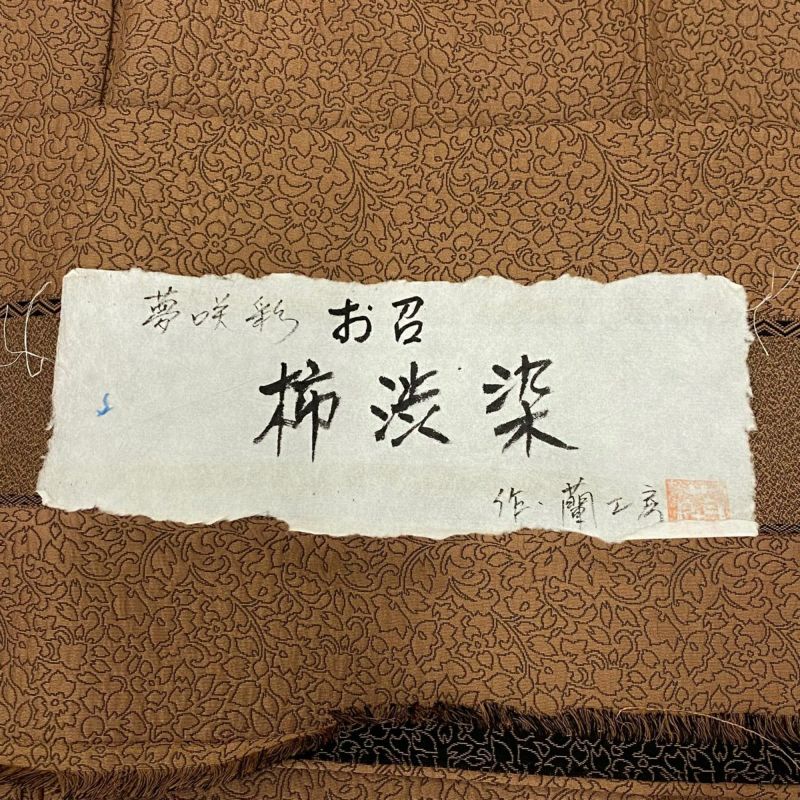 夢咲彩 お召
柿渋染
作・蘭工房